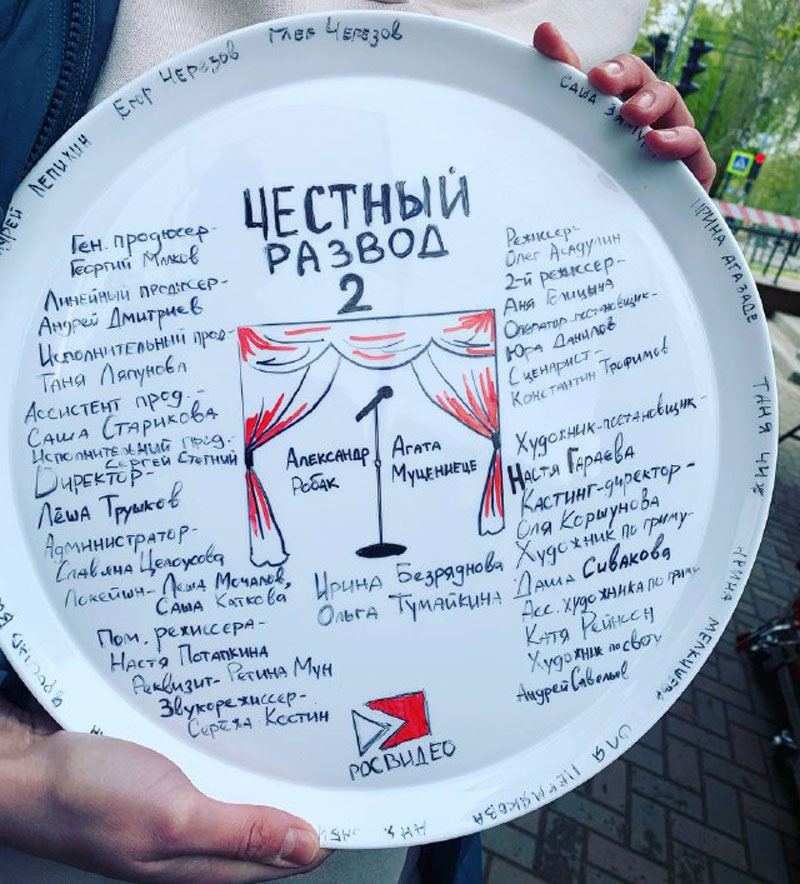 ЧЕСТНЫЙ
РАЗВОД
2
Ген. продюсер-
Георгий Малков
Линейный продюсер-
Андрей Дмитриев
Исполнительный прод-
Таня Ляпунова
Ассистент прод.-
Саша Старикова
Исполнительный прод-
Сергей Стегний
Директор-
Лёша Трушков
Администратор-
Славяна Целоусова
Локейшн- Леша Мочалов,
Саша Каткова
Пом. режиссера-
Настя Потапкина
Реквизит- Регина Мун
Звукорежиссер-
Сережа Костин
Александр
Робак
Агата
Муцениеце
Ирина Безряднова
Ольга Тумайкина
РОСВИДЕО
Режиссер-
Олег Асадулин
2-й режиссер-
Аня Голицына
Оператор-постановщик-
Юра Данилов
Сценарист-
Константин Трофимов
Художник-постановщик-
Настя Гараева
Кастинг-директор-
Оля Коршунова
Художник по гриму-
Даша Сивакова
Асс. художника по гриму
Катя Рейнсен
Художник по свету
Андрей Савельев
ЛЕПИХИН
ЕГОР ЧЕРЕЗОВ
ГЛЕБ ЧЕРЕЗОВ
САША
ИРИНА АГАЗАДЕ
ТАНЯ ЧИЖ
АРИНА
ОЛЯ ПЕРМЯКОВА
АНЯ